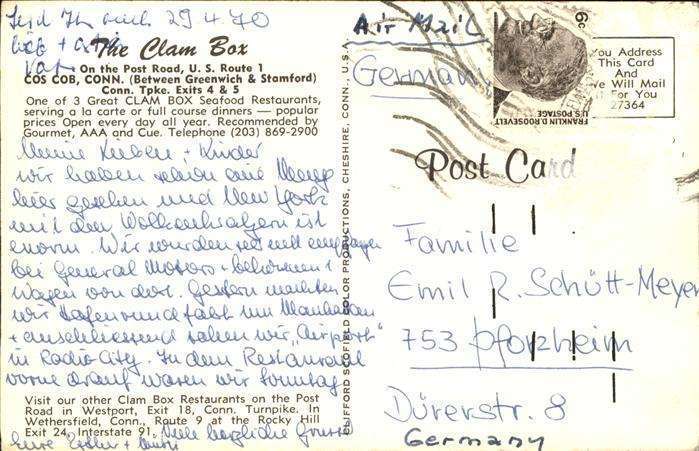 29.4.70
The Clam Box
On the Post Road, U. S. Route 1
COS COB, CONN. (Between Greenwich & Stamford)
Conn. Tpke. Exits 4 & 5
One of 3 Great CLAM BOX Seafood Restaurants,
serving a la carte or full course dinners — popular
prices Open every day all year. Recommended by
Gourmet, AAA and Cue. Telephone (203) 869-2900
Meine Lieben + Kinder
wir haben schon eine Menge
hier gesehen und New York
mit den Wolkenkratzern ist
enorm. Wir wurden
bei General Motors + bekommen 1
Wagen von dort. Gestern machten
wir Hafenrundfahrt um Manhattan
+ anschliessend sahen wir "Airport"
in Radio City. In dem Restaurant
vorne drauf waren wir Sonntag
Visit our other Clam Box Restaurants on the Post
Road in Westport, Exit 18, Conn. Turnpike. In
Wethersfield, Conn., Route 9 at the Rocky Hill
Exit 24, Interstate 91.
Viele herzliche Grüsse
Eure
CLIFFORD SCOFIELD COLOR PRODUCTIONS, CHESHIRE, CONN., U.S.A.
Air Mail
Germany
6c
FRANKLIN ROOSEVELT
U.S. POSTAGE
You Address
This Card
And
We Will Mail
For You
27364
Post Card
Familie
Emil R. Schütt-Meyer
753 Pforzheim
Dürerstr. 8
Germany